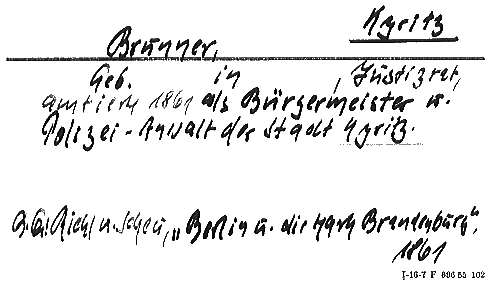 Kyritz
Brunner,
Geb. in , Justizrat,
amtiert 1861 als Bürgermeister u.
Polizei-Anwalt der Stadt Kyritz.
Riehl u. Scheu, „Berlin u. die Mark Brandenburg",
1861
I-16-7 F 896 55 102